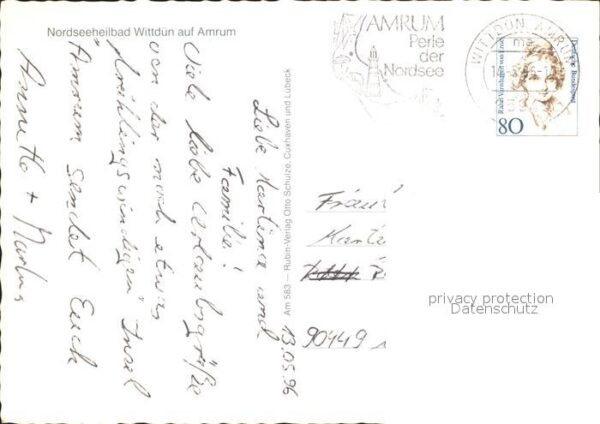 Nordseeheilbad Wittdün auf Amrum
AMRUM
Perle
der
Nordsee
WITTDÜN, AMRUM
Deutsche Bundespost
Rahel Varnhagen von Ense
80
Am 583 — Rubin-Verlag Otto Schulze, Cuxhaven und Lübeck
13.05.96
Liebe Martina und
Familie!
Viele liebe Urlaubsgrüße
von der noch etwas
"frühlingswindigen" Insel
Amrum sendet Euch
Annette + Markus
90449
privacy protection
Datenschutz